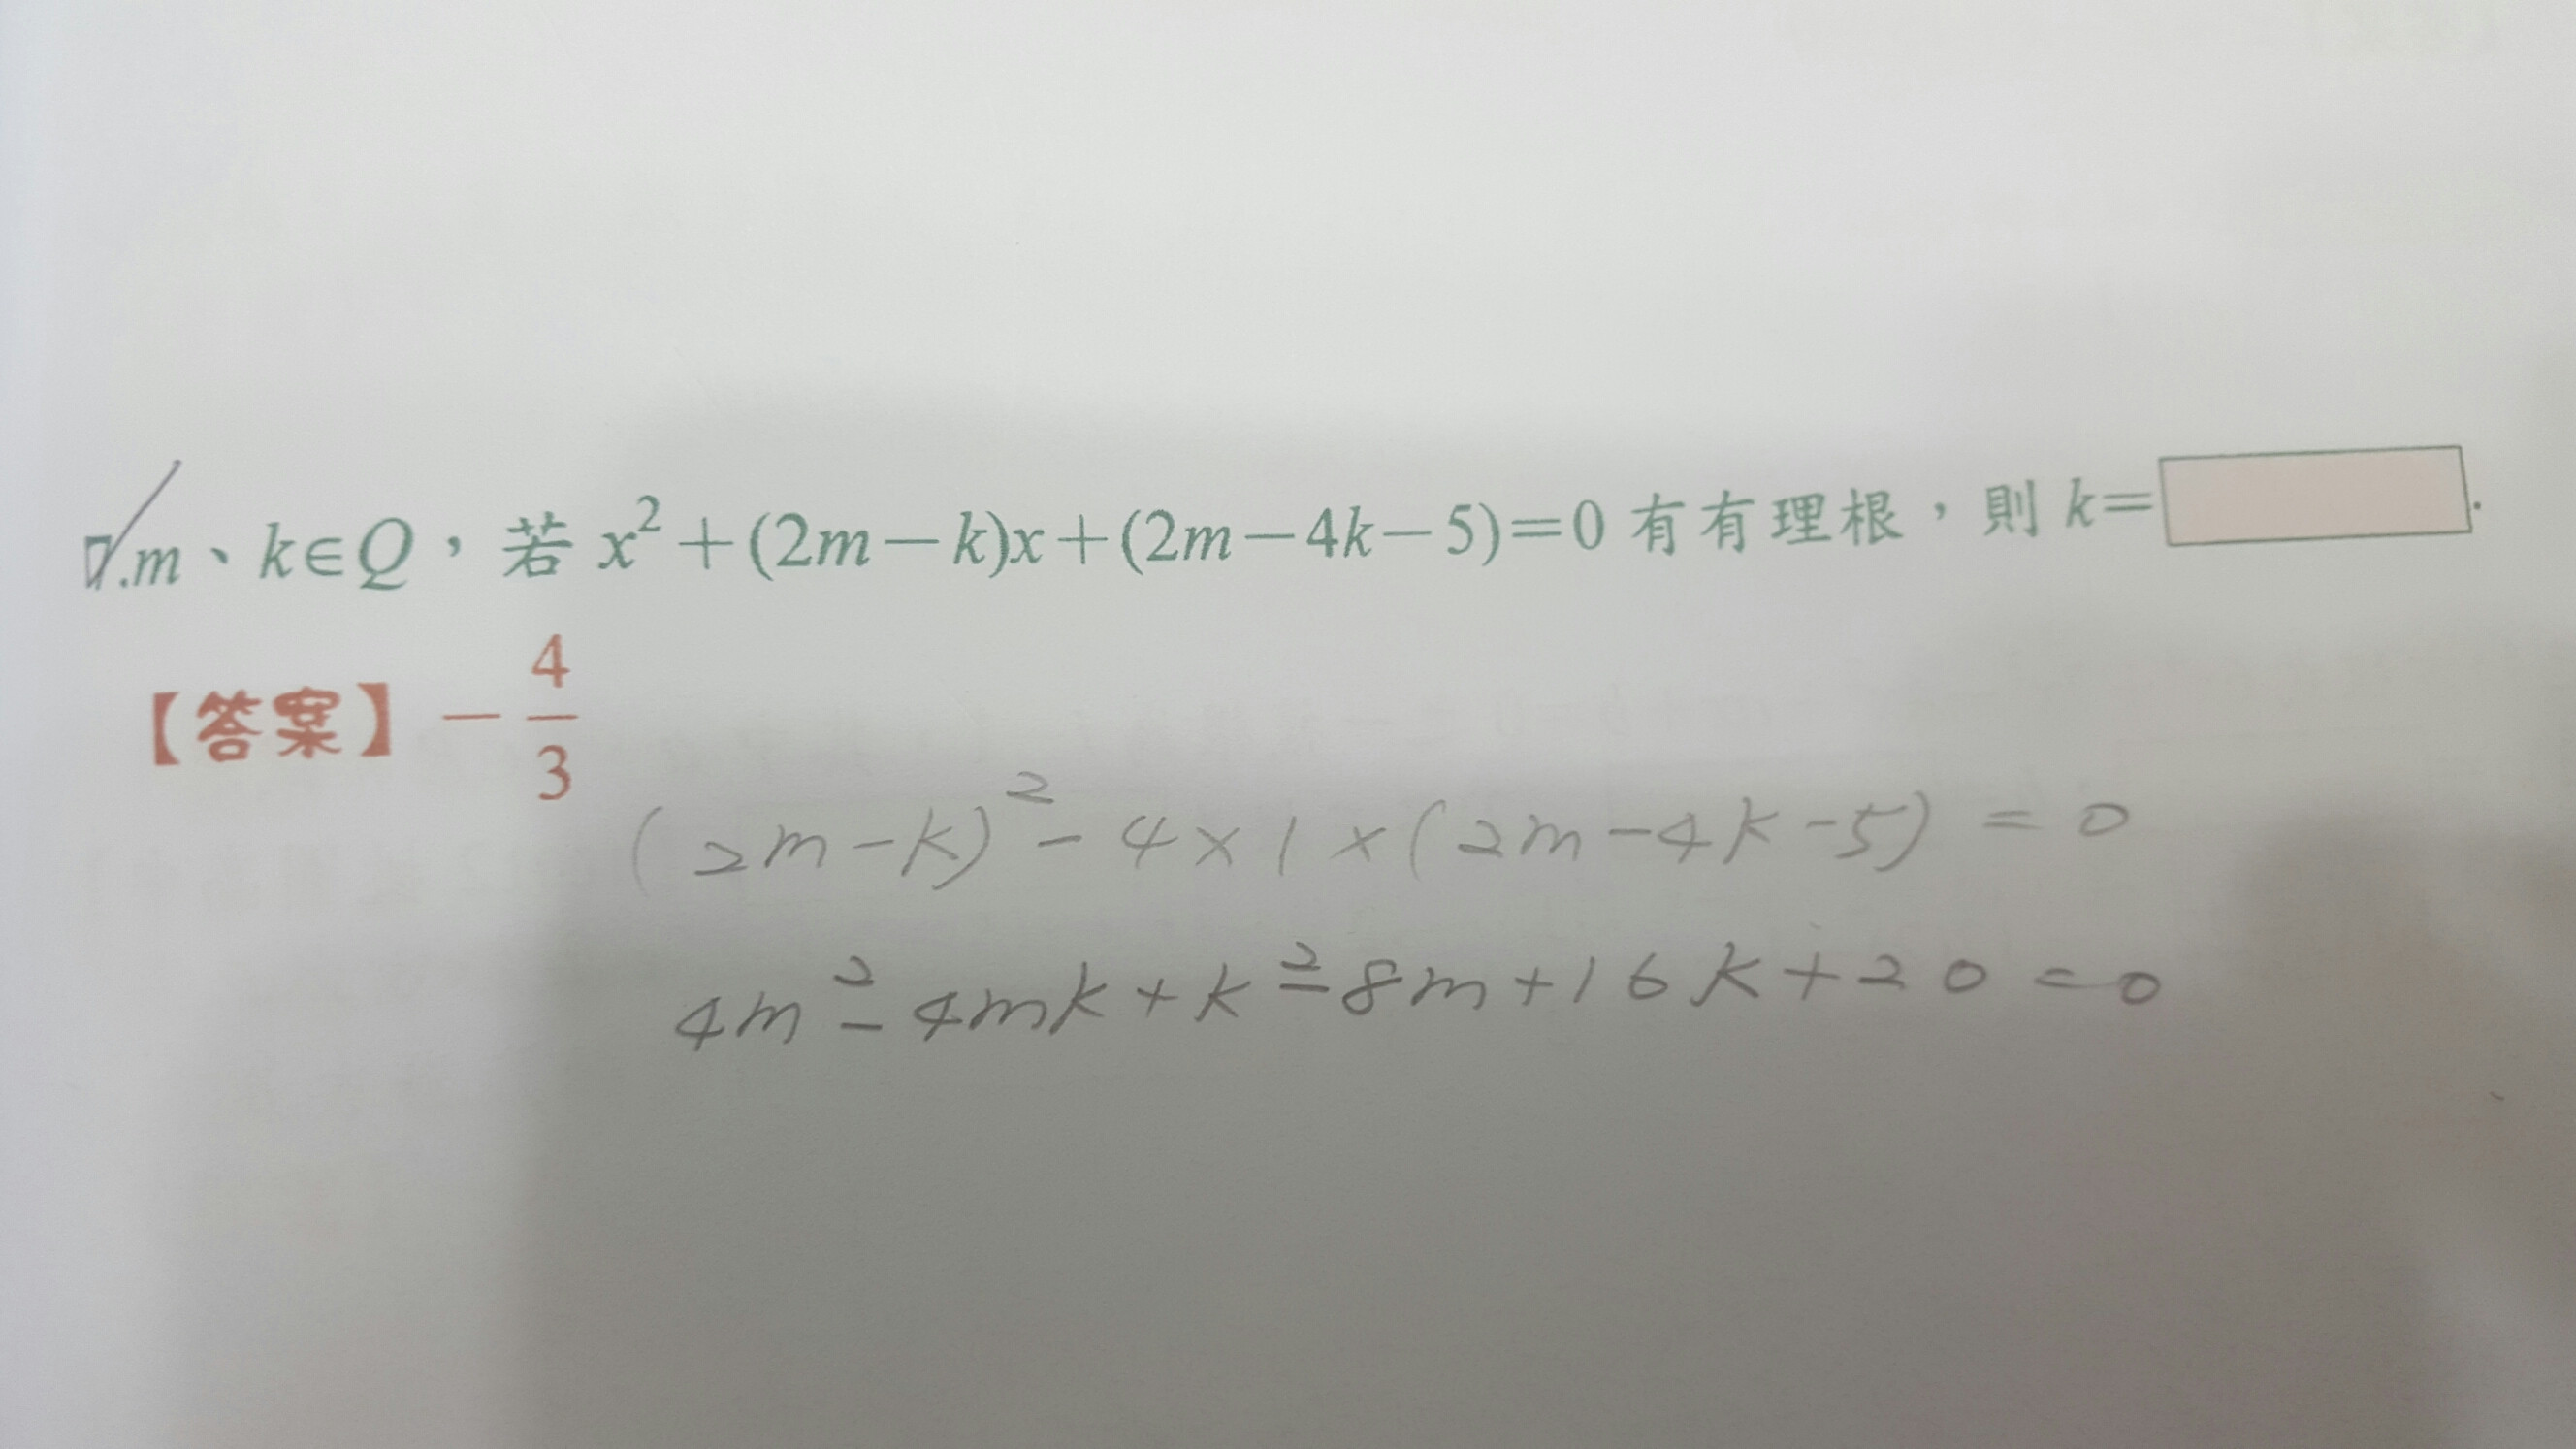 7.m、k∈Q，若 x²+(2m-k)x+(2m-4k-5)=0 有有理根，則 k=
【答案】-4/3
(2m-k)²-4×1×(2m-4k-5)=0
4m²-4mk+k²-8m+16k+20=0